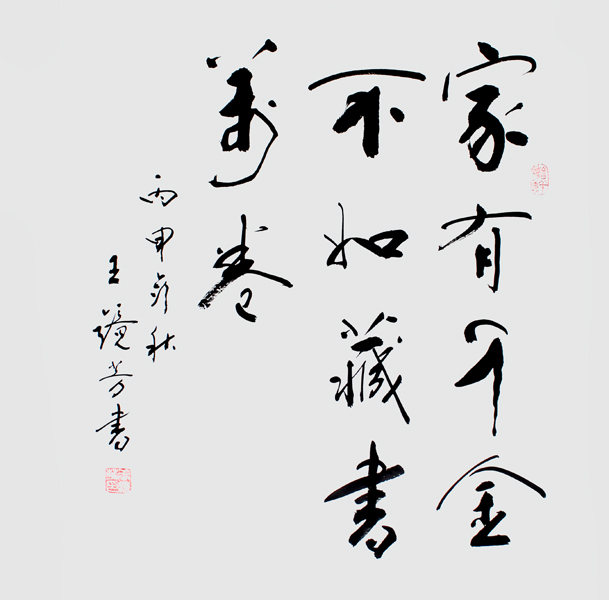 家有千金
不如藏書
萬卷
丙申年秋
王芳書